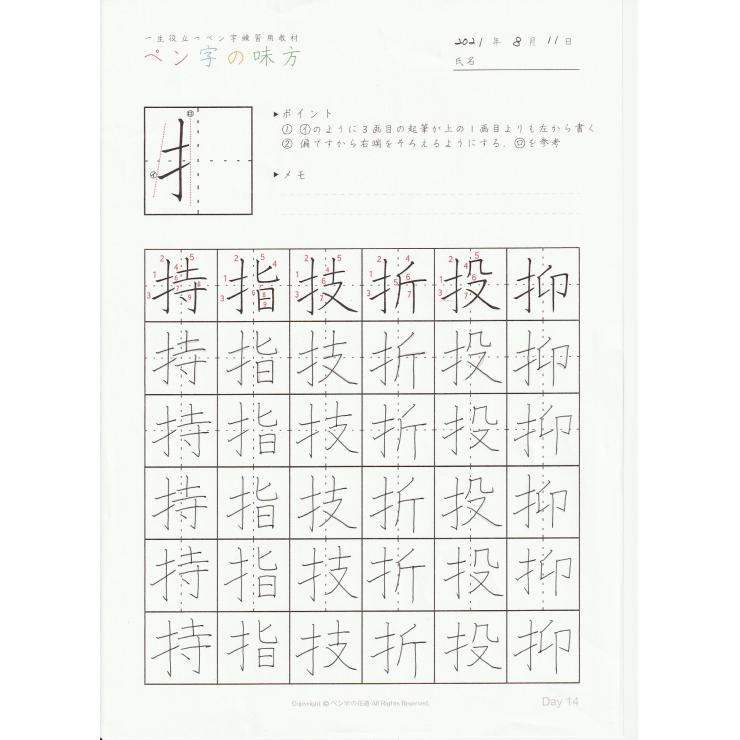 一生役立つペン字練習用教材
ペン字の味方
2021年 8月 11日
氏名
▶ポイント
① ㋑のように3画目の起筆が上の1画目よりも左から書く
② 偏ですから右端をそろえるようにする。㋺を参考
▶メモ
扌
㋺
㋑
持 指 技 折 投 抑
持 指 技 折 投 抑
持 指 技 折 投 抑
持 指 技 折 投 抑
持 指 技 折 投 抑
持 指 技 折 投 抑
Copyright © ペン字の花道 All Rights Reserved.
Day 14